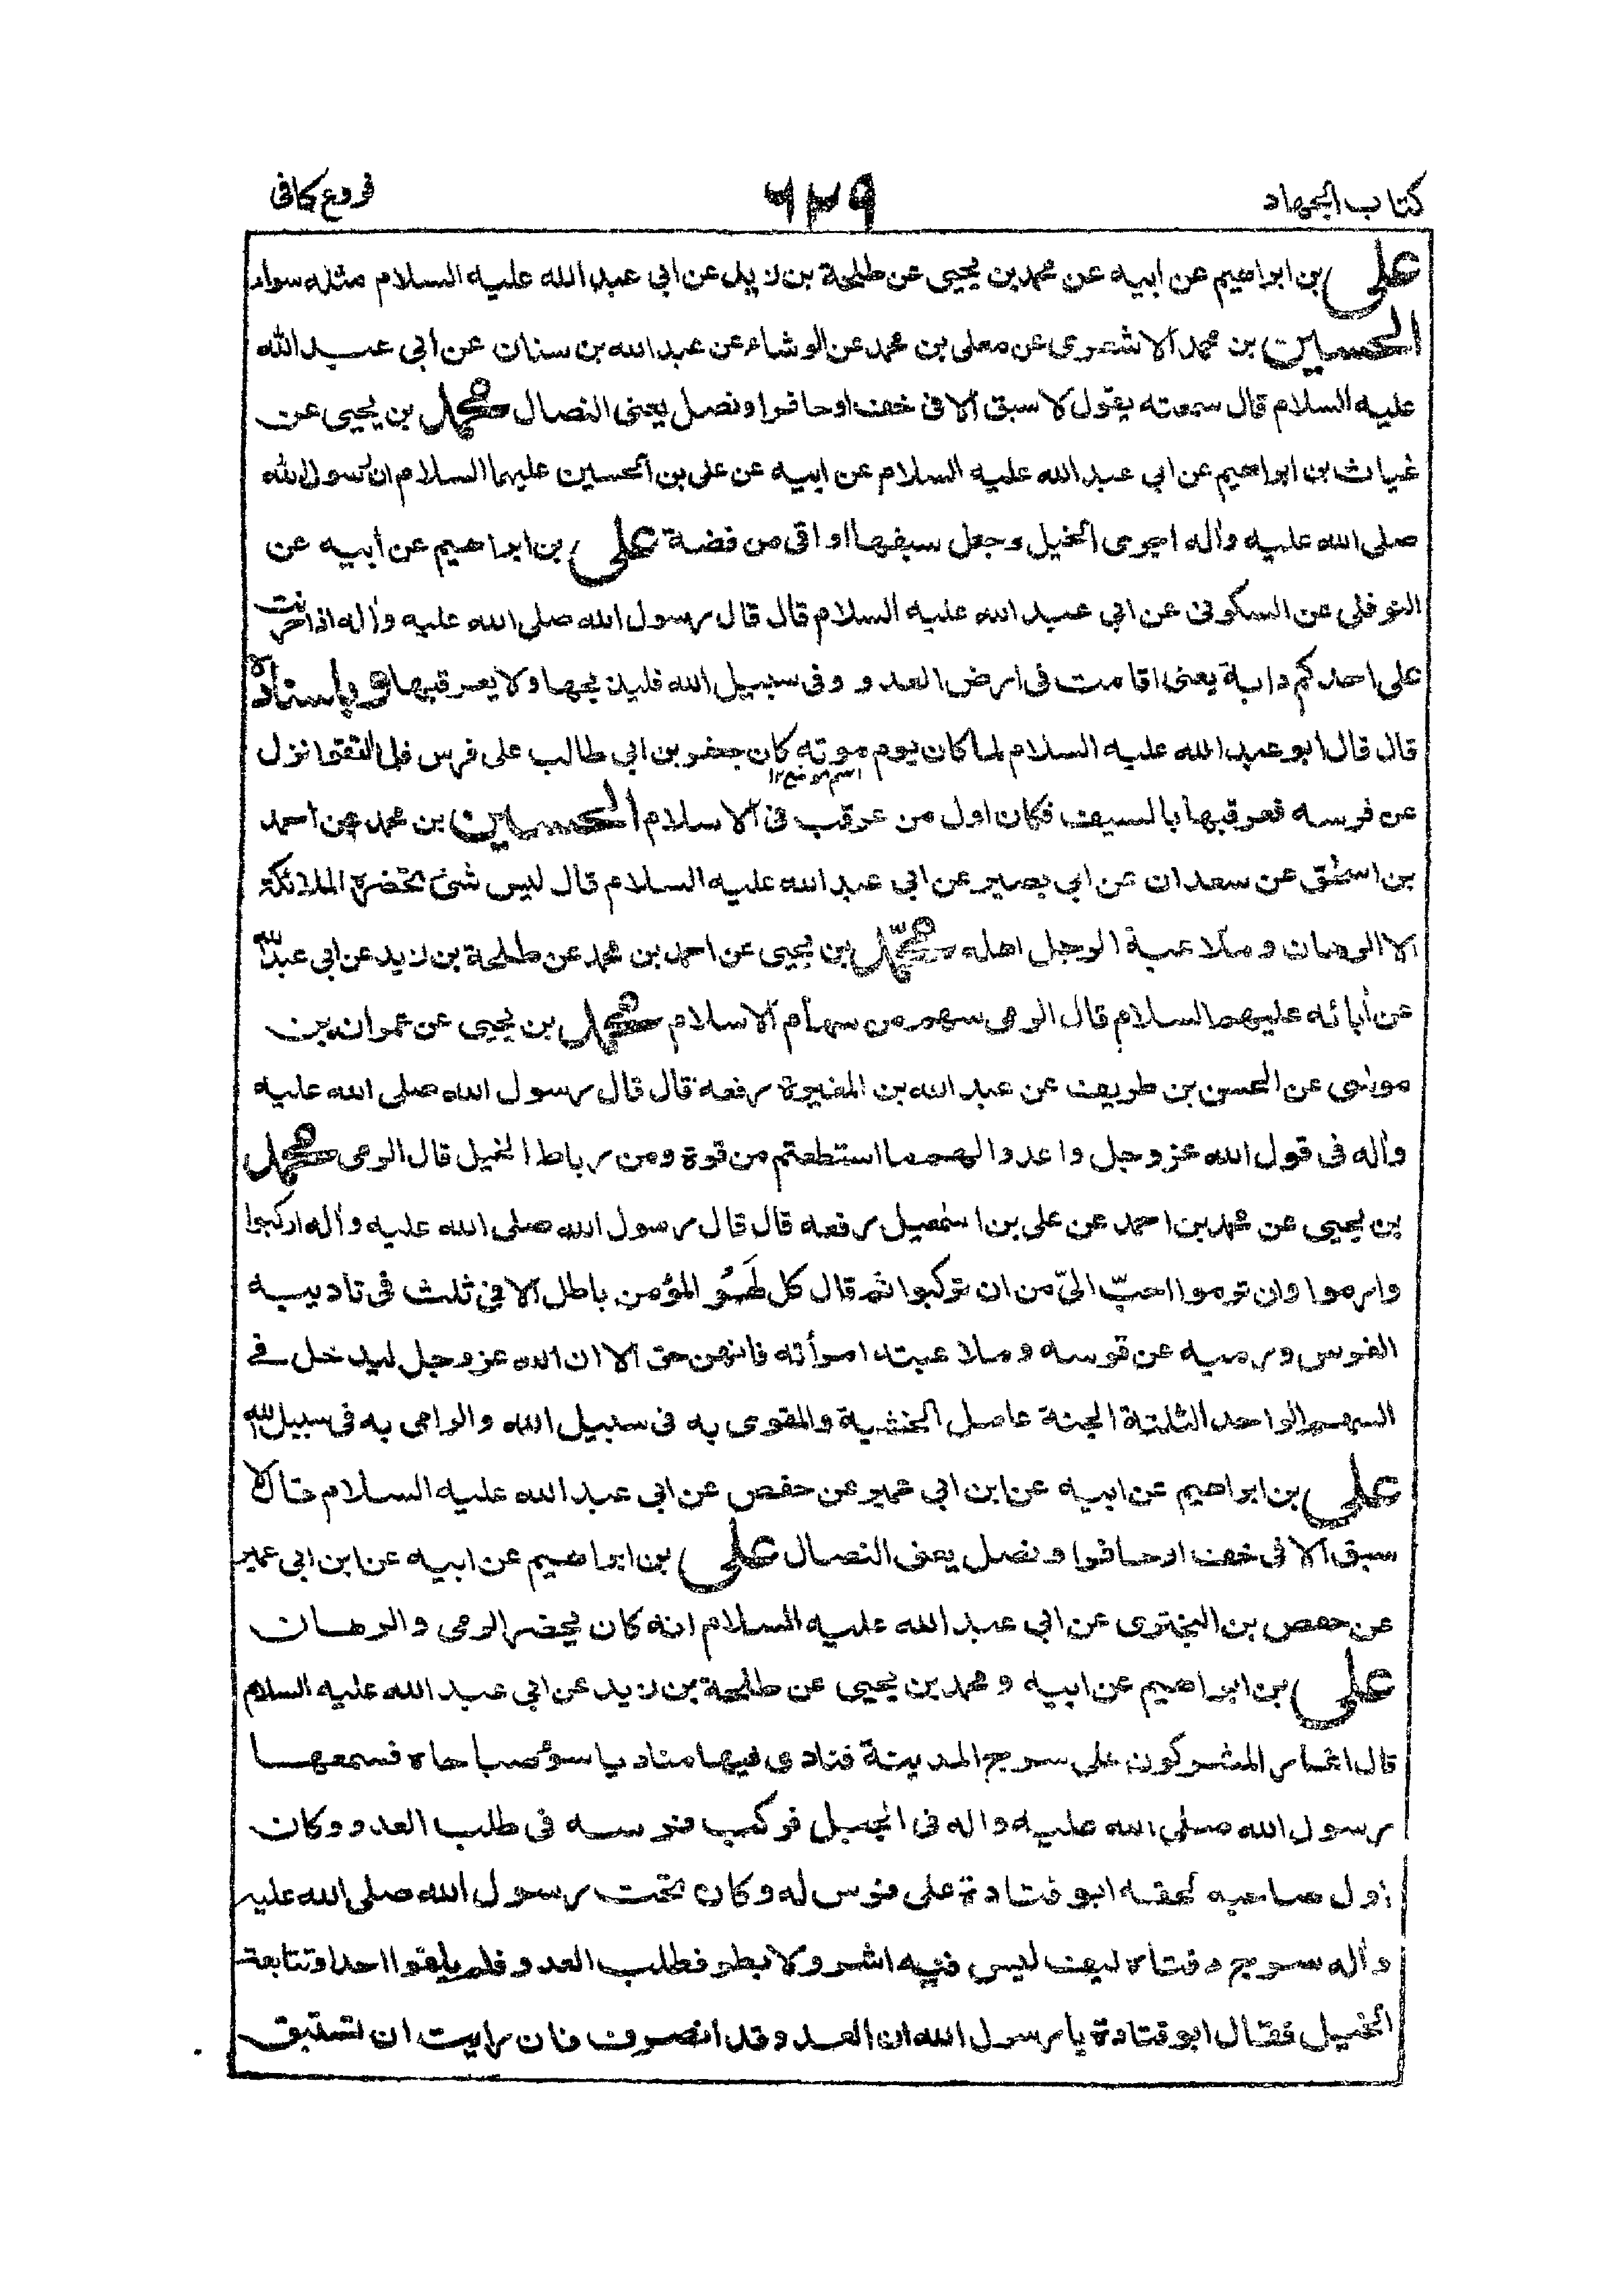 كتاب الجهاد ٦٢٩ فروع كافى
على بن ابراهيم عن ابيه عن محمد بن يحيى عن طلحة بن زيد عن ابي عبد الله عليه السلام مثله سواء
الحسين بن محمد الاشعرى عن معلى بن محمد عن الوشاء عن عبد الله بن سنان عن ابي عبد الله
عليه السلام قال سمعته يقول لا سبق الا فى خف او حافر او نصل يعنى النصال محمد بن يحيى عن
غياث بن ابراهيم عن ابي عبد الله عليه السلام عن ابيه عن على بن الحسين عليهما السلام ان رسول الله
صلى الله عليه واٰله اجرى الخيل وجعل سبقها اواقى من فضة على بن ابراهيم عن أبيه عن
النوفلى عن السكونى عن ابي عبد الله عليه السلام قال قال رسول الله صلى الله عليه واٰله اذا حرنت
على احدكم دابة يعنى اقامت فى ارض العدو وفى سبيل الله فليذبحها ولا يعرقبها وباسناده
قال قال ابو عبد الله عليه السلام لما كان يوم موته كان جعفر بن ابي طالب على فرس فلما التقوا نزل
اسم موضع ١٢
عن فرسه فعرقبها بالسيف فكان اول من عرقب فى الاسلام الحسين بن محمد عن احمد
بن اسحٰق عن سعدان عن ابي بصير عن ابي عبد الله عليه السلام قال ليس شئ تحضره الملائكة
الا الرهان وملاعبة الرجل اهله محمّد بن يحيى عن احمد بن محمد عن طلحة بن زيد عن ابي عبد الله
عن أبائه عليهم السلام قال الرمى سهم من سهام الاسلام محمد بن يحيى عن عمران بن
موسٰى عن الحسن بن طريف عن عبد الله بن المغيرة رفعه قال قال رسول الله صلى الله عليه
واٰله فى قول الله عز وجل واعدوا لهم ما استطعتم من قوة ومن رباط الخيل قال الرمى محمد
بن يحيى عن محمد بن احمد عن على بن اسمٰعيل رفعه قال قال رسول الله صلى الله عليه واٰله اركبوا
وارموا وان ترموا احبّ الىّ من ان تركبوا ثم قال كل لَهْوُ المؤمن باطل الا فى ثلث فى تاديبه
الفرس ورميه عن قوسه وملاعبته امرأته فانهن حق الا ان الله عز وجل ليدخل فى
السهم الواحد الثلثة الجنة عامل الخشبة والمقوى به فى سبيل الله والرامى به فى سبيل الله
على بن ابراهيم عن ابيه عن ابن ابي عمير عن حفص عن ابي عبد الله عليه السلام قال لا
سبق الا فى خف او حافر او نصل يعنى النصال على بن ابراهيم عن ابيه عن ابن ابي عمير
عن حفص بن البخترى عن ابي عبد الله عليه السلام انه كان يحضر الرمى والرهان
على بن ابراهيم عن ابيه ومحمد بن يحيى عن طلحة بن زيد عن ابي عبد الله عليه السلام
قال اغار المشركون على سرح المدينة فنادى فيها مناد يا سوء صباحاه فسمعها
رسول الله صلى الله عليه واله فى الجبل فركب فرسه فى طلب العدو وكان
اول صاحبه لحقه ابو قتادة على فرس له وكان تحت رسول الله صلى الله عليه
واٰله سرج دفتاه ليف ليس فيه اشر ولا بطر فطلب العدو فلم يلقوا احدا وتتابعت
الخيل فقال ابو قتادة يا رسول الله ان العدو قد انصرف فان رايت ان نستبق